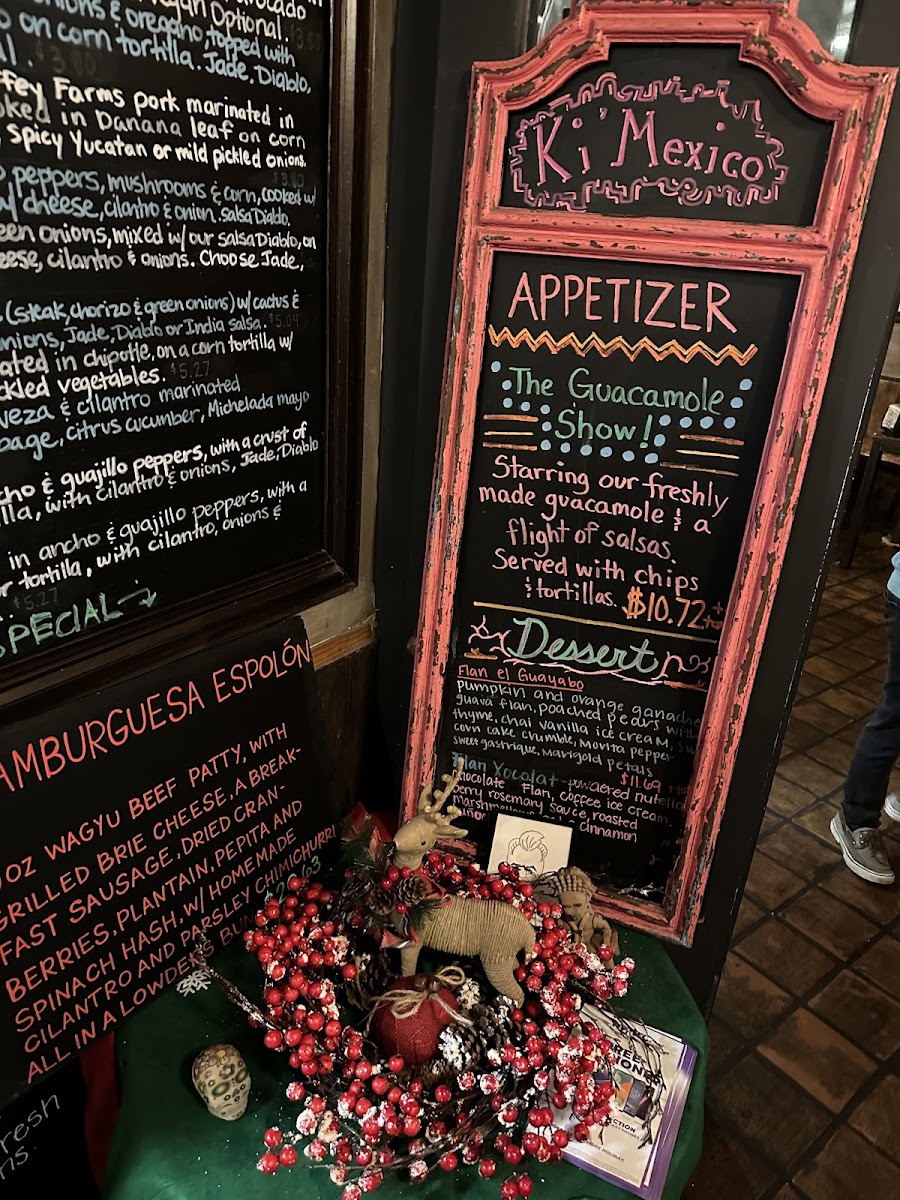 avocado
Vegan Optional. $3.80
onions & oregano, topped with
o on corn tortilla. Jade, Diablo,
$3.80
ffey Farms pork marinated in
oked in Banana leaf on corn
, spicy Yucatan or mild pickled onions.
$3.80
o peppers, mushrooms & corn, cooked w/
w/ cheese, cilantro & onion. Salsa Diablo.
een onions, mixed w/ our Salsa Diablo, on
eese, cilantro & onions. Choose Jade,
(steak, chorizo & green onions) w/ cactus &
nions, Jade, Diablo or India salsa. $5.04
ated in chipotle, on a corn tortilla w/
ckled vegetables. $5.27
veza & cilantro marinated
bage, citrus cucumber, Michelada mayo
cho & guajillo peppers, with a crust of
lla, with cilantro & onions, Jade, Diablo
in ancho & guajillo peppers, with a
r tortilla, with cilantro, onions &
$5.27
SPECIAL
AMBURGUESA ESPOLÓN
OZ WAGYU BEEF PATTY, WITH
GRILLED BRIE CHEESE, A BREAK-
FAST SAUSAGE, DRIED CRAN-
BERRIES, PLANTAIN, PEPITA AND
SPINACH HASH, W/ HOMEMADE
CILANTRO AND PARSLEY CHIMICHURRI
ALL IN A LOWDER'S BUN
resh
Ki'Mexico
APPETIZER
The Guacamole
Show!
Starring our freshly
made guacamole & a
flight of salsas.
Served with chips
& tortillas. $10.72 + tax
Dessert
Flan el Guayabo
pumpkin and orange ganache
guava flan, poached pears with
thyme, chai vanilla ice cream,
corn cake crumble, Morita pepper
sweet gastrique, marigold petals
$11.69
Flan Xocolat - powdered nutella
chocolate Flan, coffee ice cream,
berry rosemary sauce, roasted
cinnamon